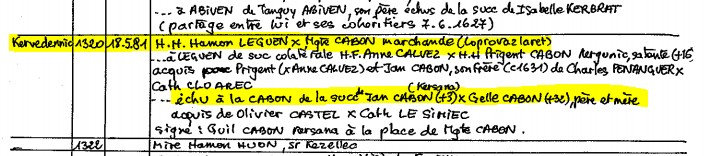 ...à ABIVEN de Tanguy ABIVEN, son père échus de la succ de Isabelle KERBRAT
(partage entre lui et ses cohéritiers 7.6.1627)
Kervedennic 1320 18.5.81 H.H. Hamon LEGUEN x Mgte CABON marchande (Loprovazlaret)
...à LEGUEN de suc colatérale H.F. Anne CALVEZ x H.H Prigent CABON
acquis Prigent (x Anne CALVEZ) et Jan CABON, son frère (c1631) de Charles PENANGUER x
Cath CLOAREC (Kersana)
échu à la CABON de la succ de Jan CABON (+3) x Gelle CABON (+32), père et mère
acquis de Olivier CASTEL x Cath LE SIMIEC
signé : Guil CABON Persana à la place de Mgte CABON.
1322 Mire Hamon HUON, sr Kezellec